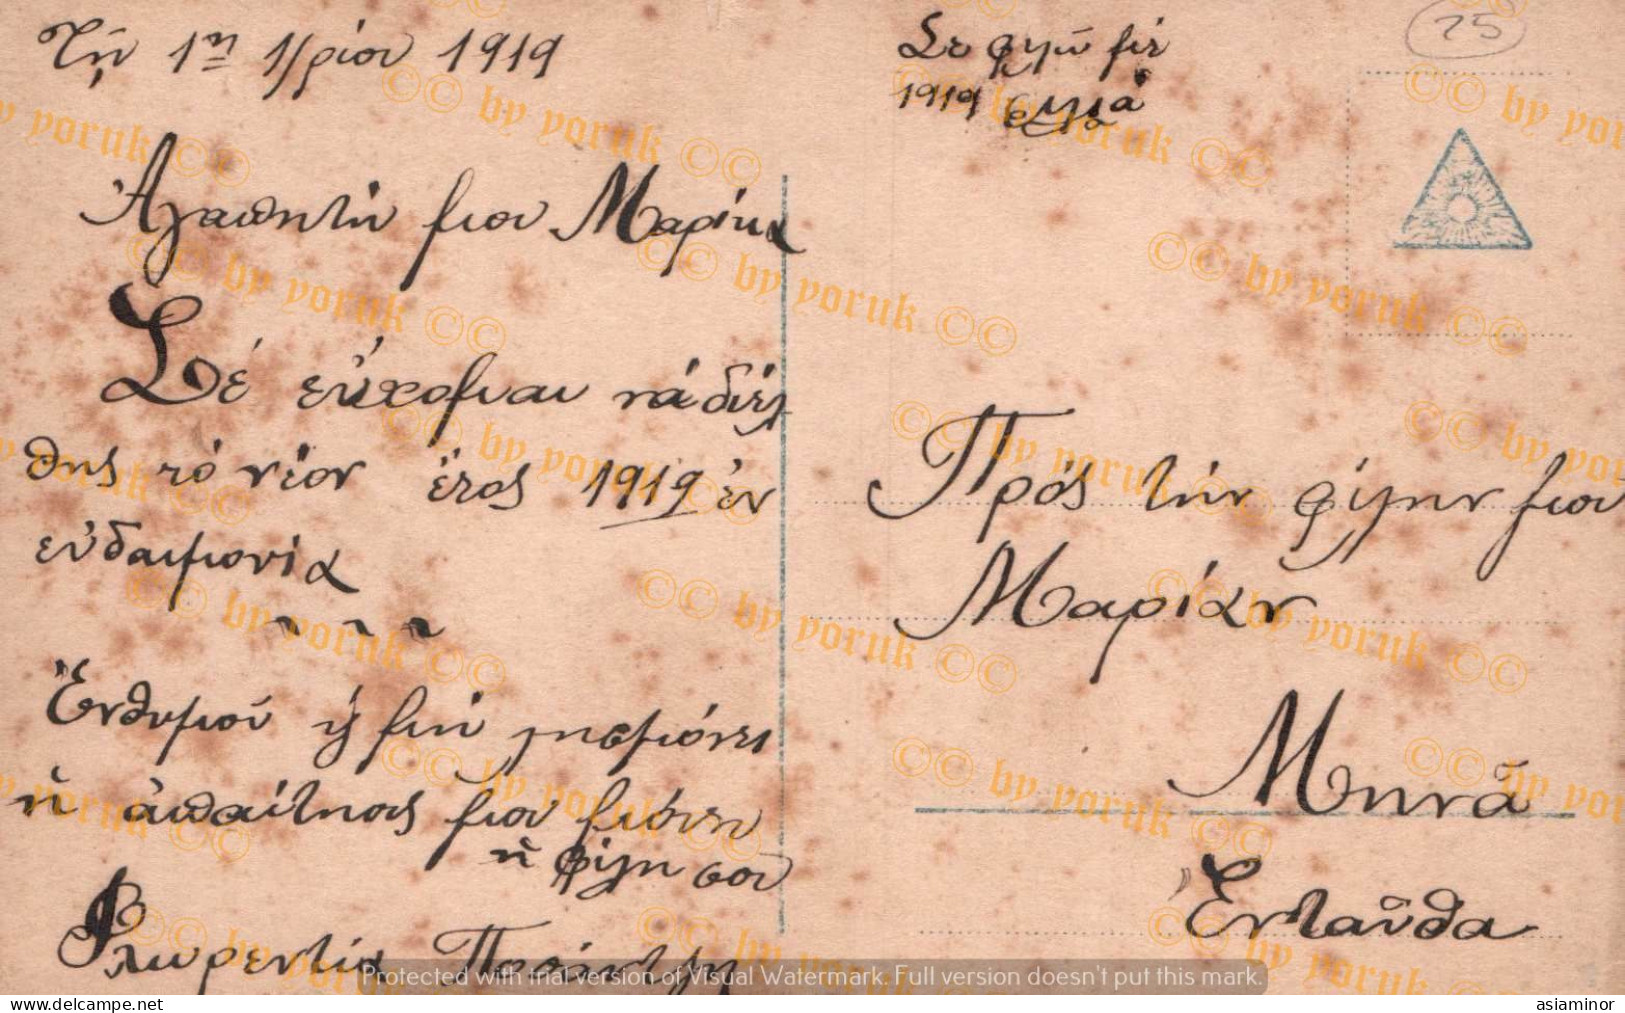 Τῇ 1ῃ 1/ρίου 1919
Ἀγαπητή μου Μαρίκα
Σέ εὔχομαι νά διέλ
θης τό νέον ἔτος 1919 ἐν
εὐδαιμονίᾳ
~ ~ ~
Ἐνθυμοῦ ἤ μή λησμόνει
ἤ ἀπαίτησίς μου μόνη
ἡ φίλη σου
Φλωρεντία
Σε φιλῶ
1919
25
Πρός τήν φίλην μου
Μαρίαν
Μηνᾶ
Ἐνταῦθα
©© by yoruk ©©
Protected with trial version of Visual Watermark. Full version doesn't put this mark.
www.delcampe.net
asiaminor